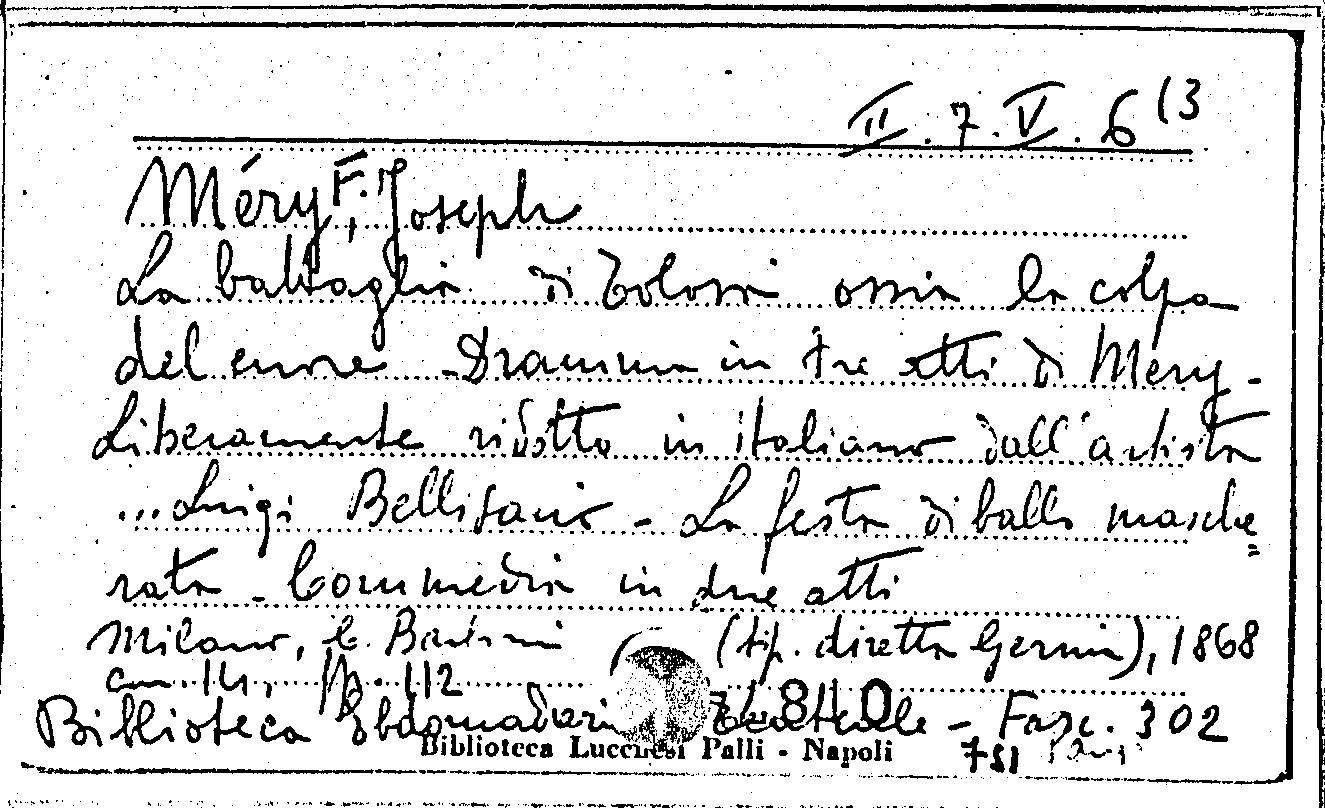 II. 7. V. 6 (3
Méry, F. Joseph
La battaglia di Tolosa ossia la colpa
del cuore - Dramma in tre atti di Méry -
Liberamente ridotto in italiano dall'artista
... Luigi Bellisario - La festa di ballo masche=
rata - Commedia in due atti
Milano, C. Barbini (tip. diretta Gernia), 1868
cm. 14, pp. 112
Biblioteca Ebdomadaria Teatrale - Fasc. 302
Biblioteca Lucchesi Palli - Napoli